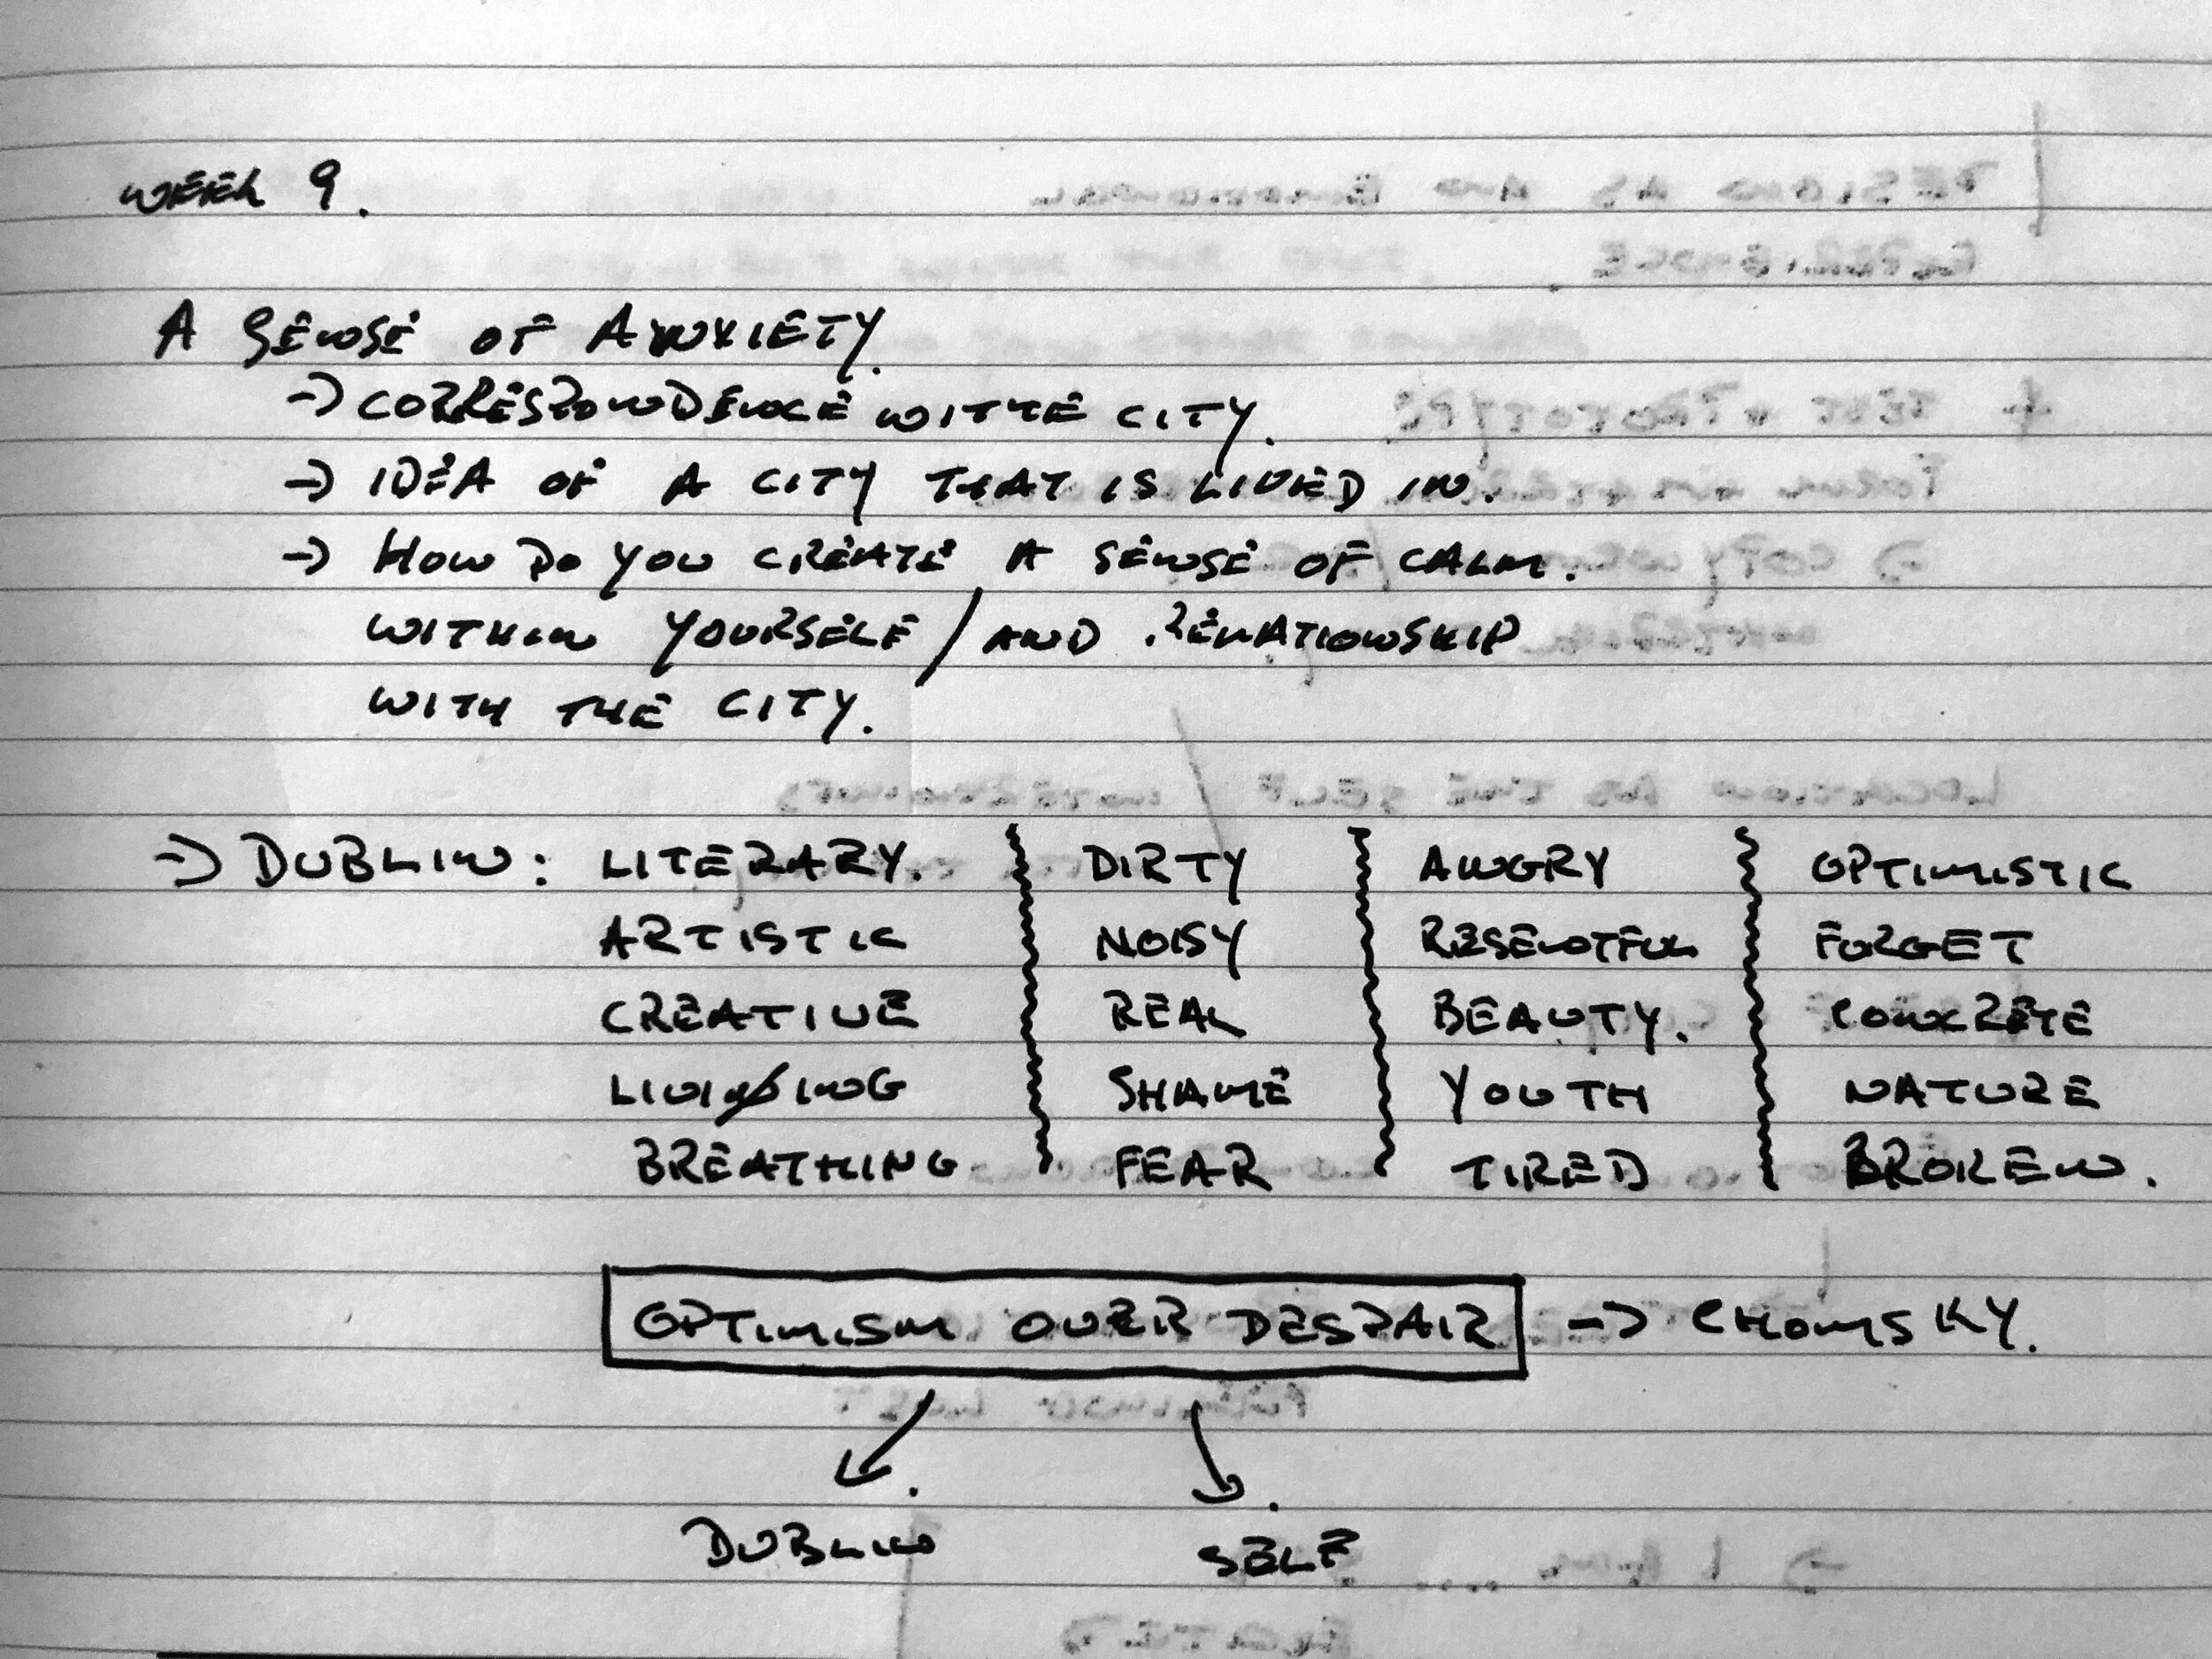 WEEK 9.
A SENSE OF ANXIETY.
→ CORRESPONDENCE WITTE CITY.
→ IDEA OF A CITY THAT IS LIVED IN.
→ HOW DO YOU CREATE A SENSE OF CALM.
WITHIN YOURSELF / AND RELATIONSHIP
WITH THE CITY.
→ DUBLIN: LITERARY. DIRTY ANGRY OPTIMISTIC
ARTISTIC NOISY RESENTFUL FORGET
CREATIVE REAL BEAUTY. CONCRETE
LIVING SHAME YOUTH NATURE
BREATHING FEAR TIRED BROKEN.
OPTIMISM OVER DESPAIR → CHOMSKY.
DUBLIN SELF